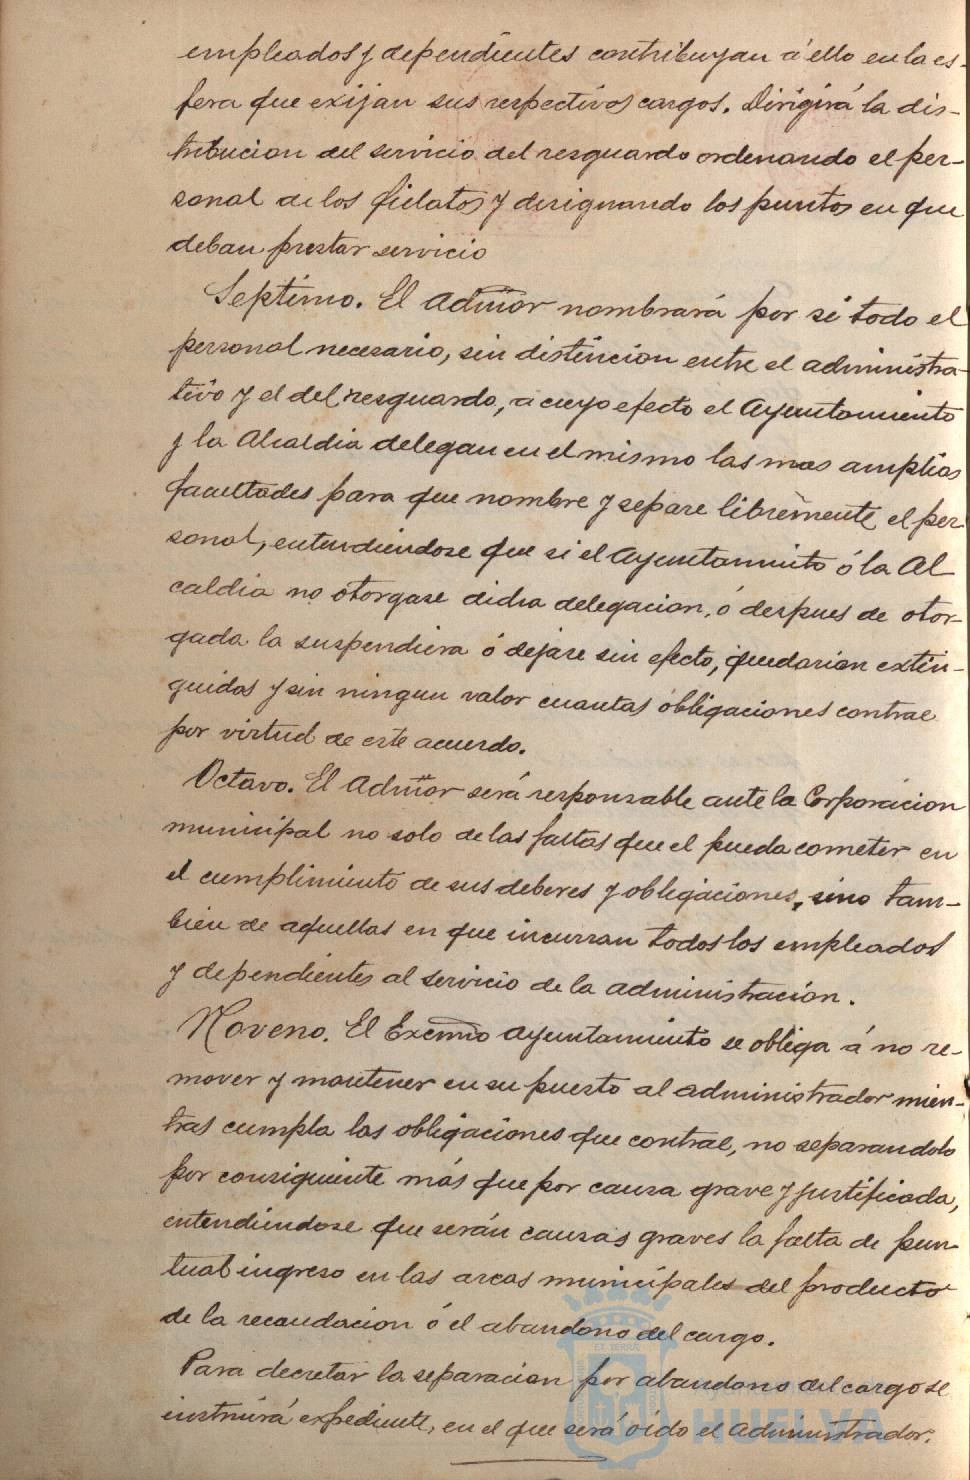 empleados y dependientes contribuyan á ello en la es-
fera que exijan sus respectivos cargos. Dirigirá la dis-
tribucion del servicio del resguardo ordenando el per-
sonal de los fielatos y designando los puntos en que
deban prestar servicio
Septimo. El Admõr nombrará por si todo el
personal necesario, sin distincion entre el administra-
tivo y el del resguardo, a cuyo efecto el Ayuntamiento
y la Alcaldia delegan en el mismo las mas amplias
facultades para que nombre y separe libremente el per
sonal, entendiendose que si el Ayuntamiento ó la Al
caldia no otorgase dicha delegacion, ó despues de otor-
gada la suspendiera ó dejare sin efecto, quedarian extin-
guidas y sin ningun valor cuantas obligaciones contrae
por virtud de este acuerdo.
Octavo. El Admõr será responsable ante la Corporacion
municipal no solo de las faltas que el pueda cometer en
el cumplimiento de sus deberes y obligaciones, sino tam-
bien de aquellas en que incurran todos los empleados
y dependientes al servicio de la administracion.
Noveno. El Excmo Ayuntamiento se obliga á no re-
mover y mantener en su puesto al administrador mien-
tras cumpla las obligaciones que contrae, no separandolo
por consiguiente más que por causa grave y justificada,
entendiendose que serán causas graves la falta de pun
tual ingreso en las arcas municipales del producto
de la recaudacion ó el abandono del cargo.
Para decretar la separacion por abandono del cargo se
instruirá expediente, en el que será oido el Administrador.
Ayuntamiento de
HUELVA